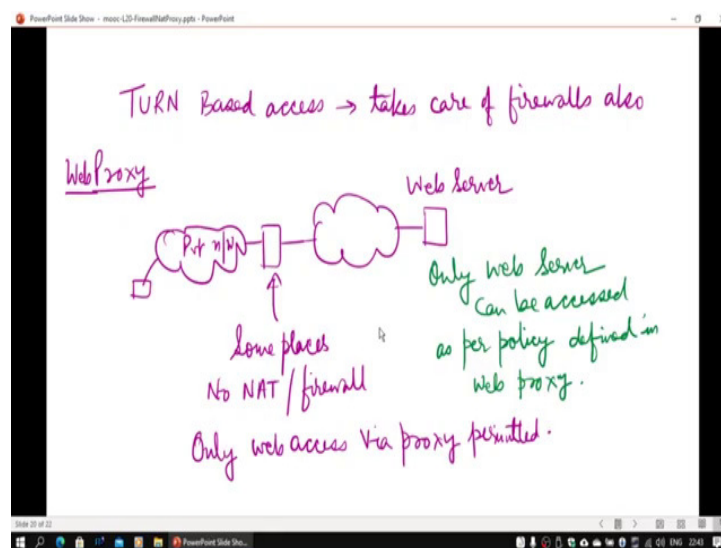 PowerPoint Slide Show - mooc-L20-FirewallNatProxy.pptx - PowerPoint
TURN Based access → takes care of firewalls also
Web Proxy
Web Server
Pvt n/w
Only web server
can be accessed
as per policy defined in
web proxy.
Some places
No NAT / firewall
Only web access via proxy permitted.
Slide 20 of 22
PowerPoint Slide Sho...
ENG
22:43